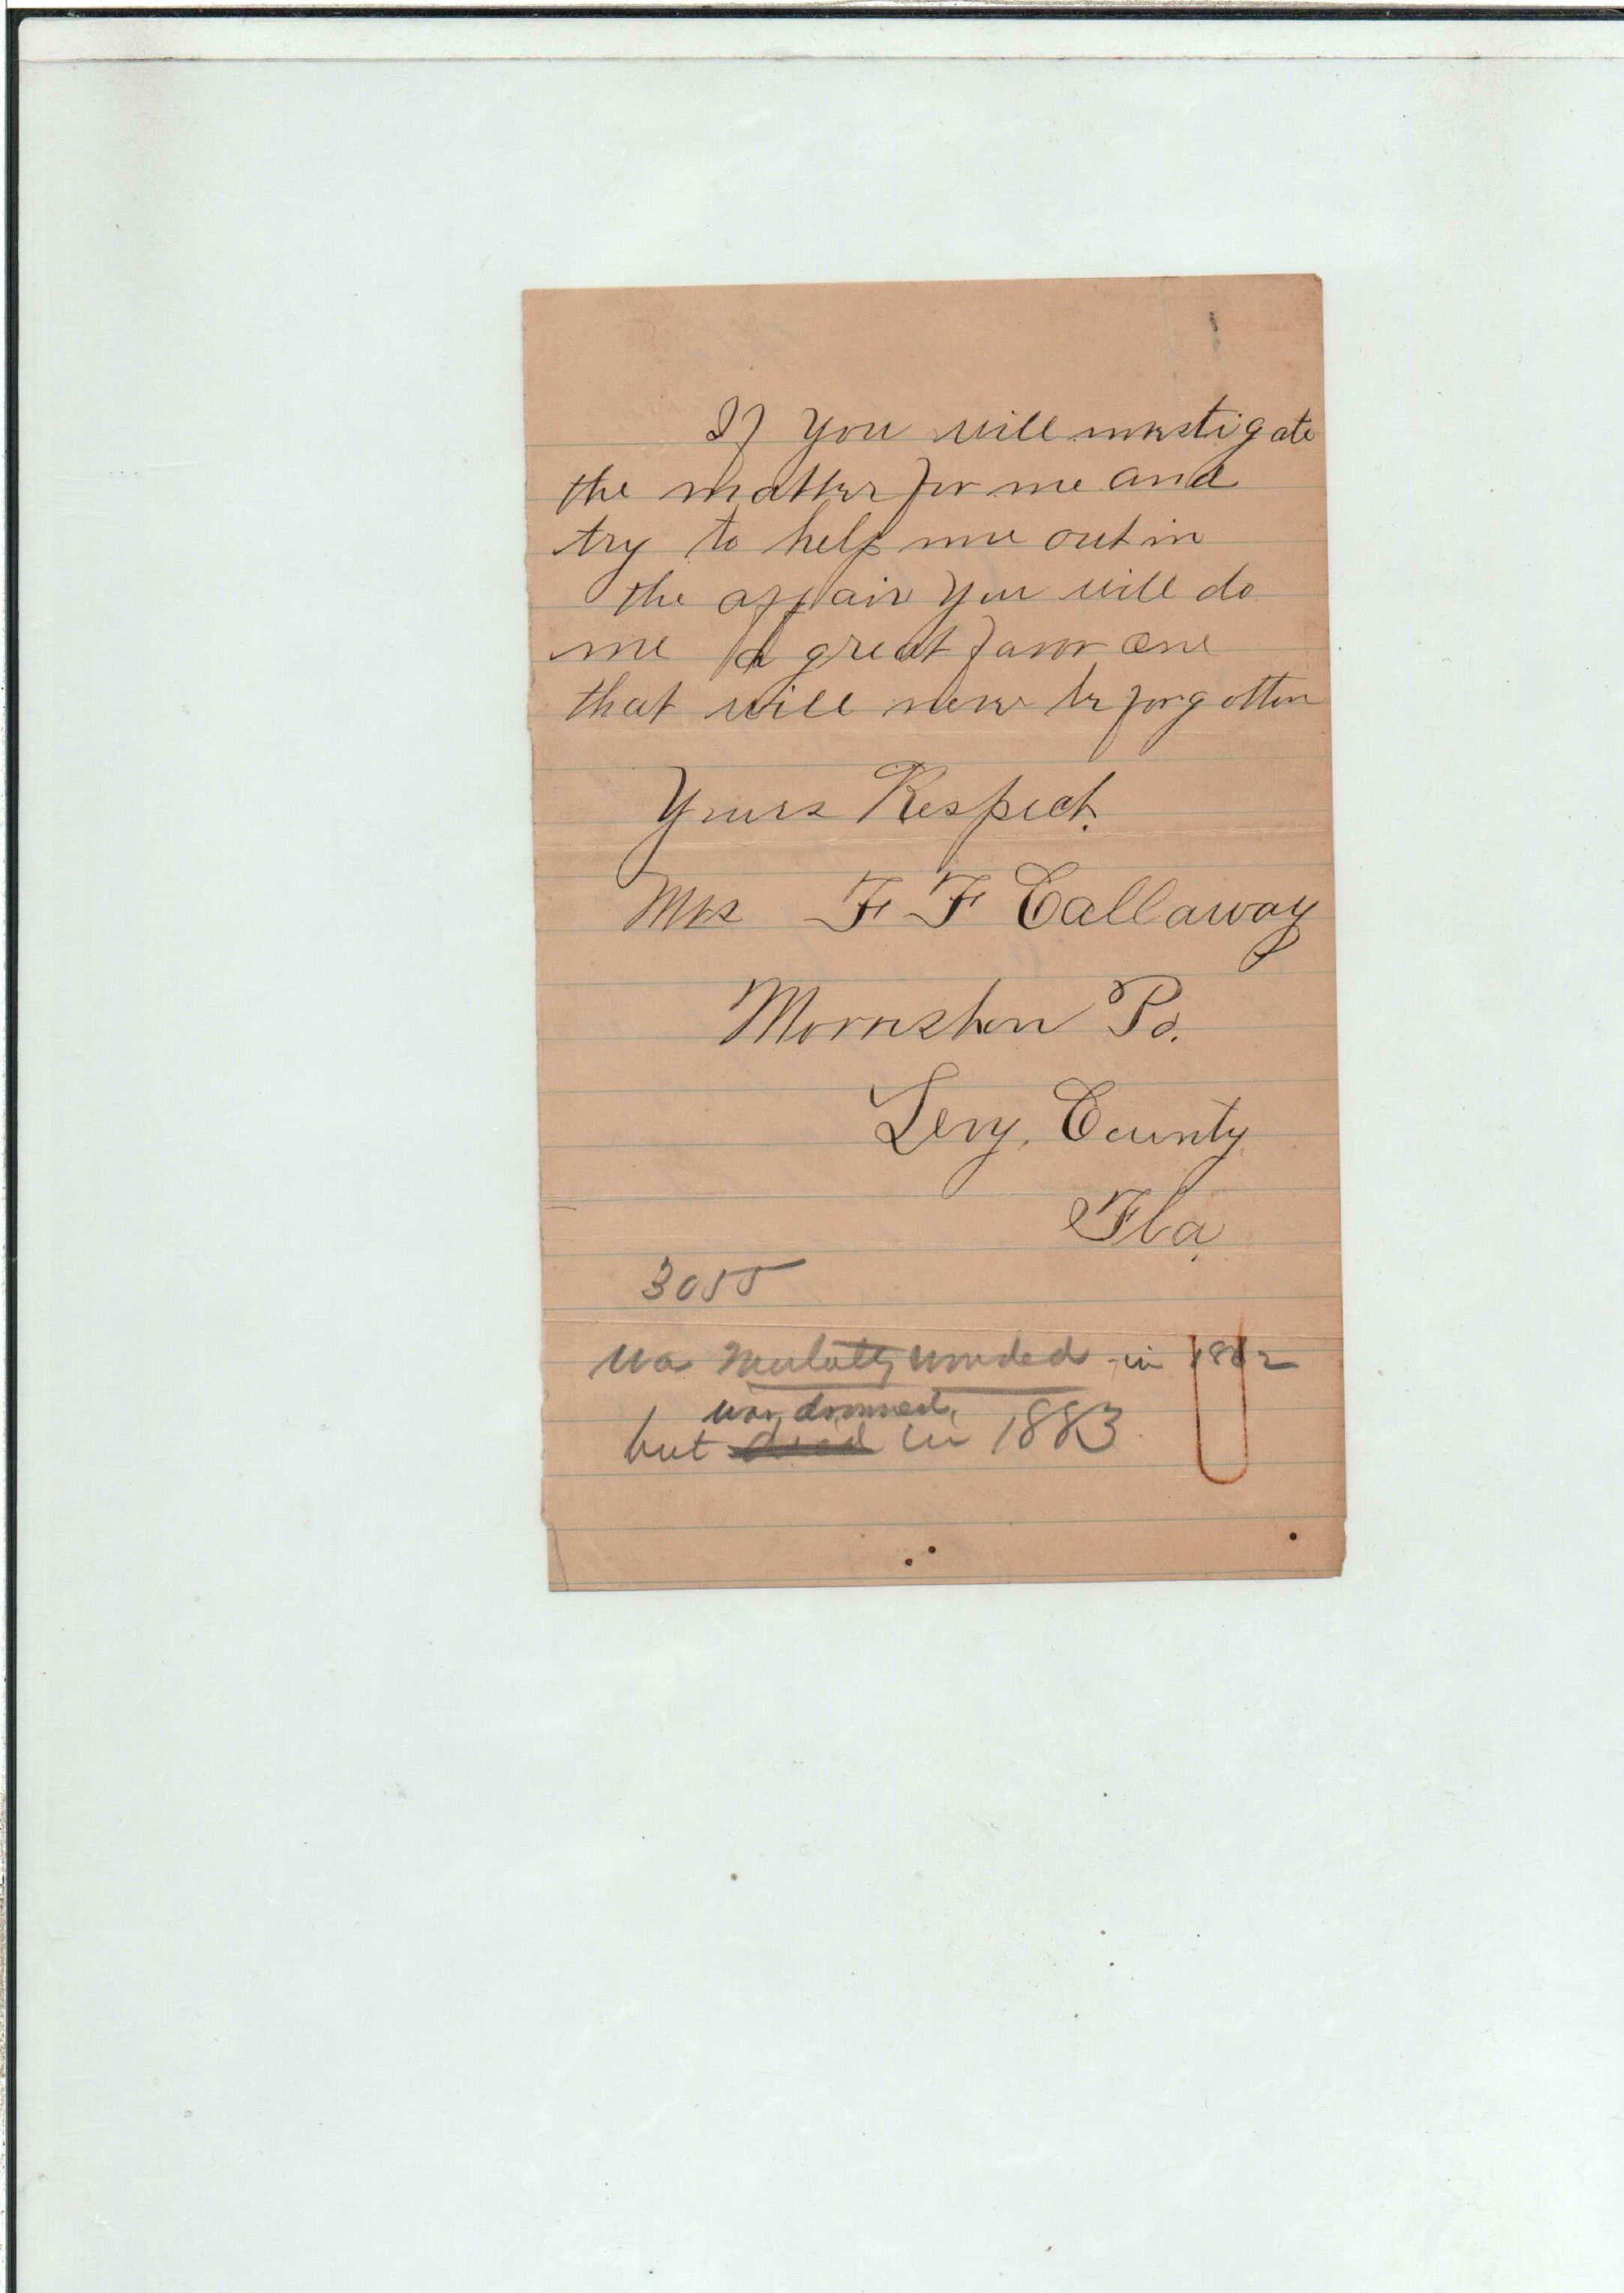 If you will investigate
the matter for me and
try to help me out in
the affair you will do
me a great favor one
that will never be forgotten
Yours Respect.
Mrs F F Callaway
Morriston Po.
Levy, County
Fla.
3055
was wounded in 1862
was drowned
but died in 1883